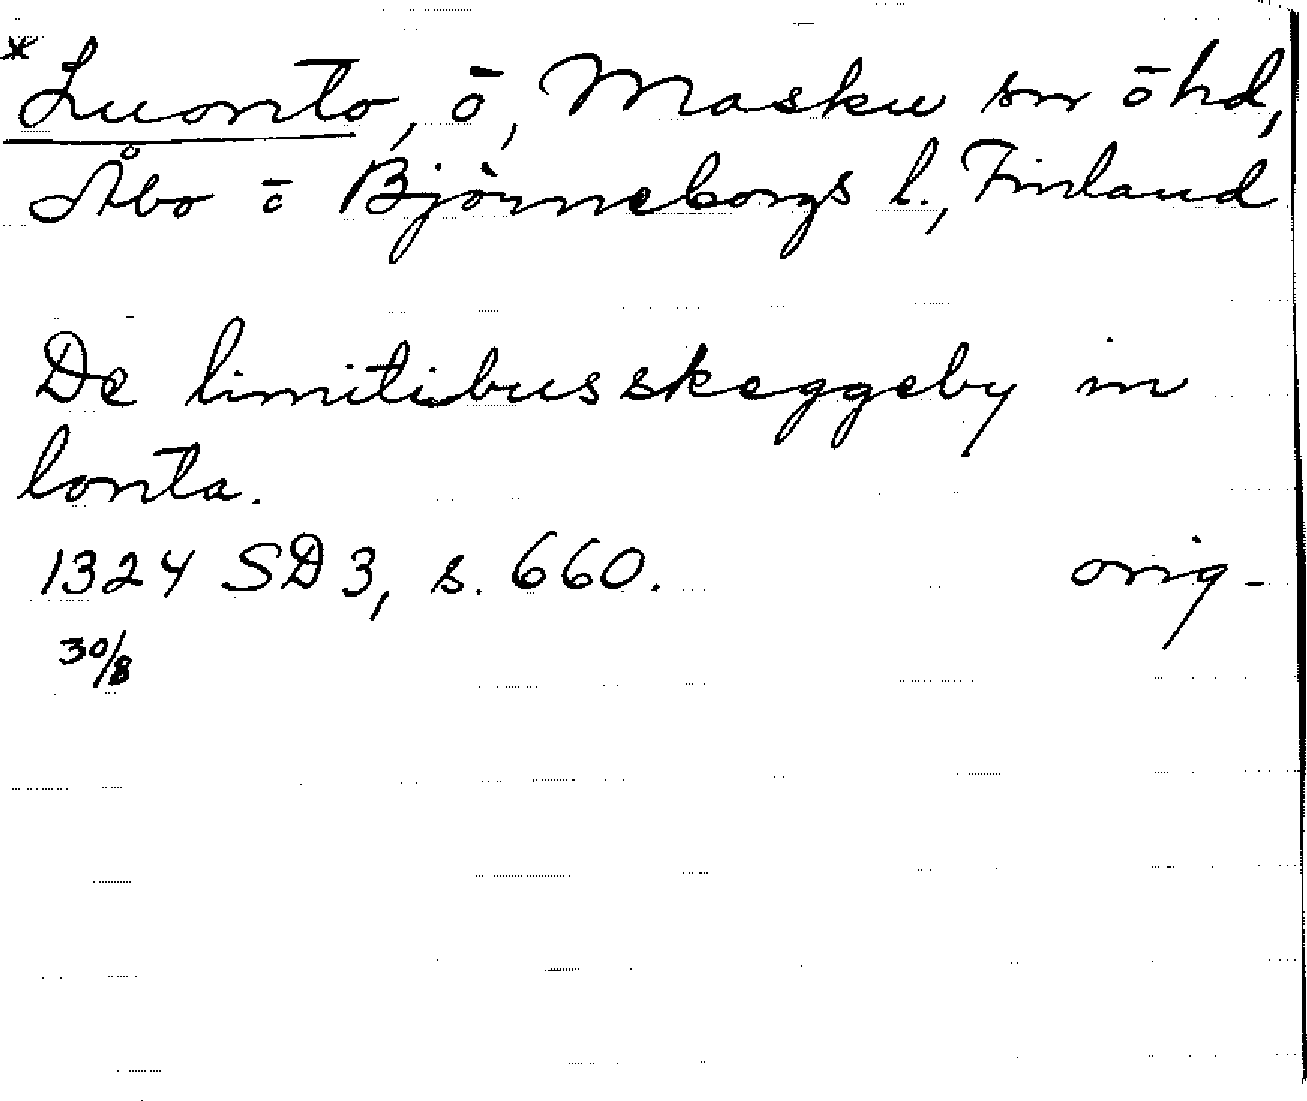 * Luonto, ō, Masku sn ō hd,
Åbo ō Björneborgs l., Finland
De limitibus skeggeby in
lonta.
1324 SD 3, s. 660. orig.
30/8